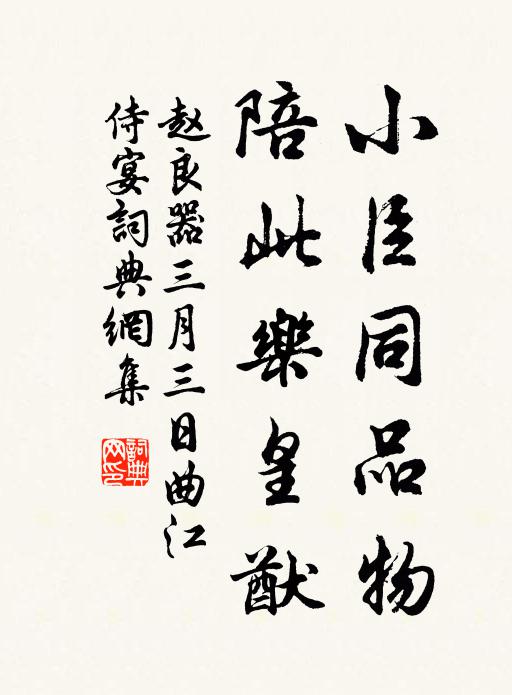 小臣同品物
陪此樂皇猷
赵良器三月三日曲江
侍宴詞典網集
詞典
网印